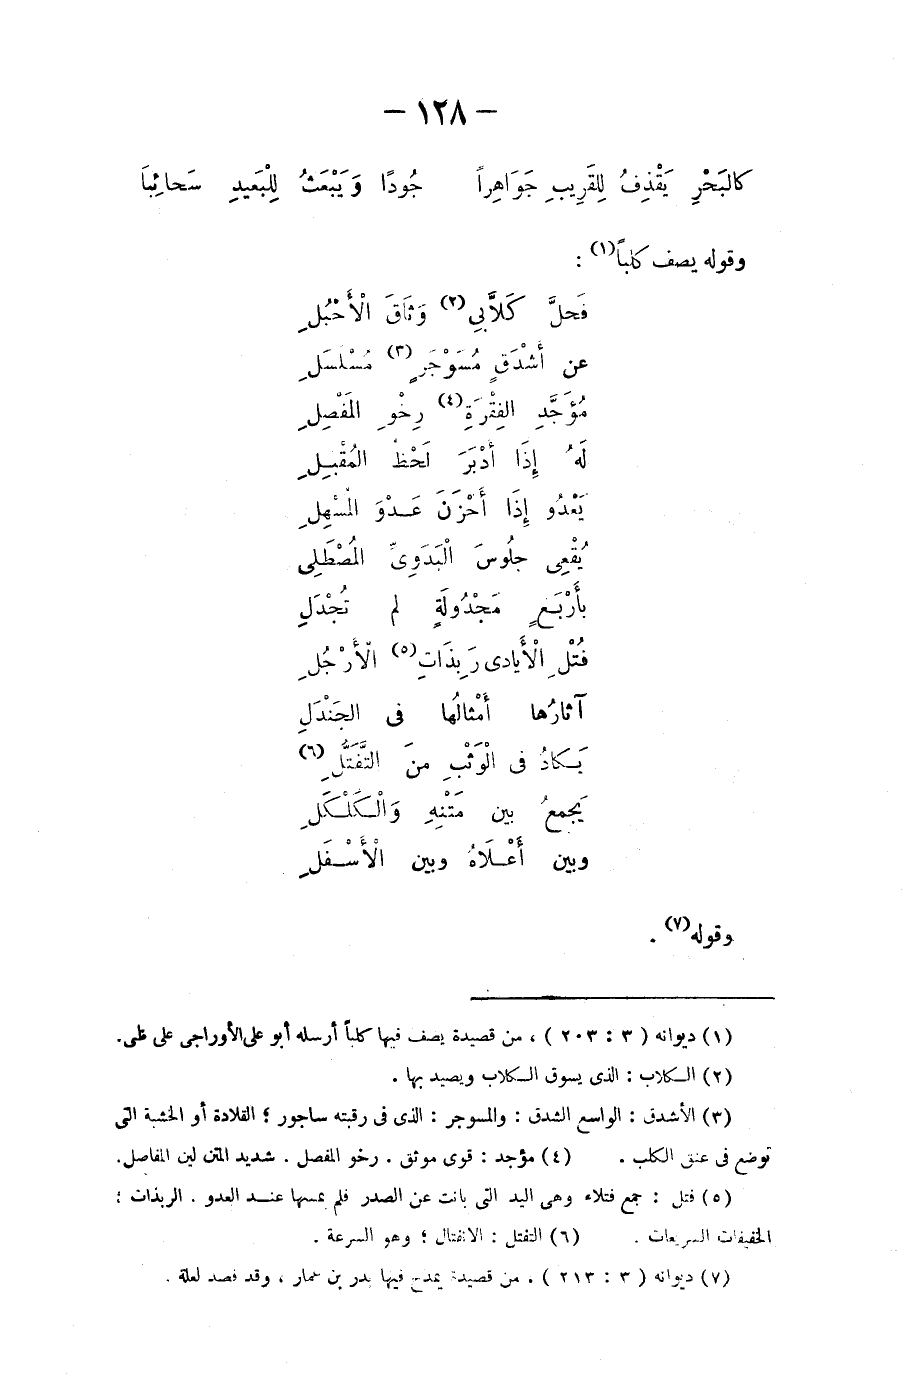 — ١٢٨ —
كالبَحْرِ يَقْذِفُ لِلقَرِيبِ جَوَاهِراً جُودًا وَيَبْعَثُ لِلْبَعِيدِ سَحائِبَا
وقوله يصف كلباً (١) :
فَحلَّ كَلاَّبِي (٢) وَثَاقَ الْأَحْبُلِ
عن أَشْدَقٍ مُسَوْجَرٍ (٣) مُسَلْسَلِ
مُؤَجَّدِ الفِقْرَةِ (٤) رِخْوِ المَفْصِلِ
لَهُ إِذَا أَدْبَرَ لَحْظُ المُقْبِلِ
يَعْدُو إِذَا أَحْزَنَ عَدْوَ المُسْهِلِ
يُقْعِى جلُوسَ الْبَدَوِىِّ المُصْطَلِى
بأَرْبَعٍ مَجْدُولَةٍ لم تُجْدَلِ
فُتْلِ الْأَيادى رَبِذَاتِ (٥) الْأَرْجُلِ
آثارُها أَمْثالُها فى الجَنْدَلِ
يَكادُ فى الْوَثْبِ منَ التَّفَتُّلِ (٦)
يَجمعُ بين مَتْنِهِ وَالْكَلْكَلِ
وبين أَعْلَاهُ وبين الْأَسْفَلِ
وقوله (٧) .
(١) ديوانه ( ٣ : ٢٠٣ ) ، من قصيدة يصف فيها كلباً أرسله أبو على الأوراجى على ظبى.
(٢) الكلاب : الذى يسوق الكلاب ويصيد بها .
(٣) الأشدق : الواسع الشدق : والمسوجر : الذى فى رقبته ساجور ؛ القلادة أو الخشبة التى
توضع فى عنق الكلب . (٤) مؤجد : قوى موثق . رخو المفصل . شديد المتن لين المفاصل.
(٥) فتل : جمع فتلاء وهى اليد التى بانت عن الصدر فلم يمسها عند العدو . الربذات :
الخفيفات السريعات . (٦) التفتل : الانفتال ؛ وهو السرعة .
(٧) ديوانه ( ٣ : ٢١٣ ) . من قصيدة يمدح فيها بدر بن عمار ، وقد فصد لعلة .